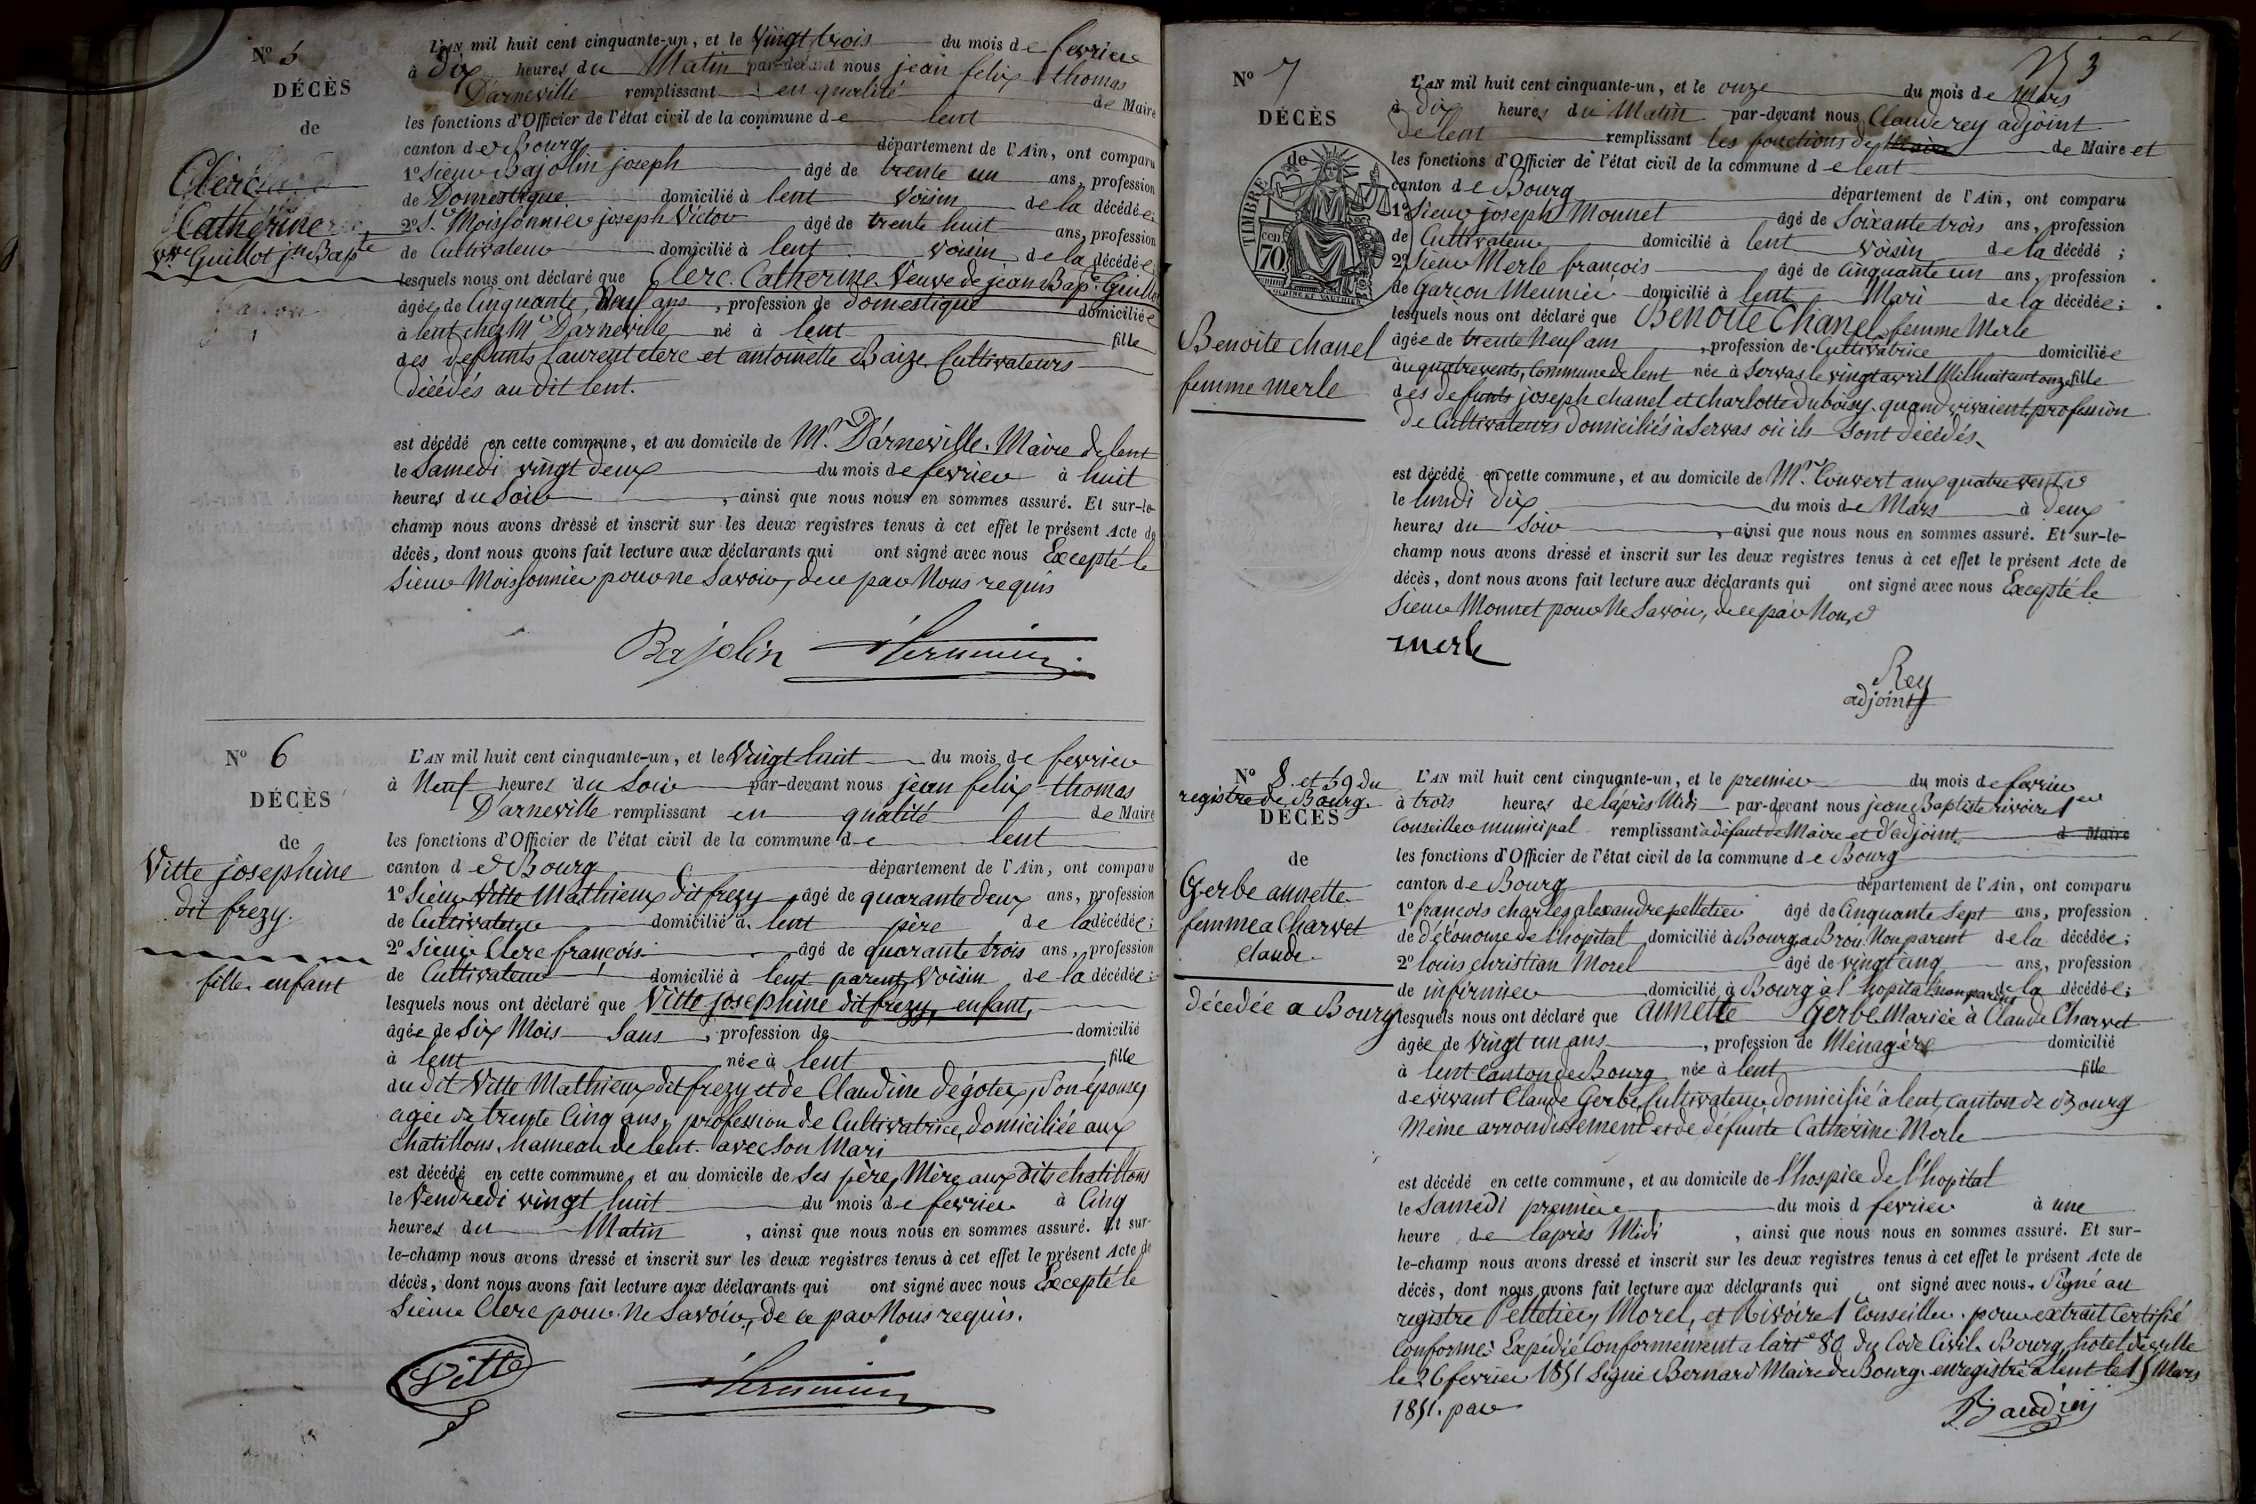 N° 5
DÉCÈS
de
Clerc
Catherine
vve Guillot jn Bapte
L'AN mil huit cent cinquante-un, et le vingt trois du mois de fevrier
à Dix heures du Matin par-devant nous jean felix thomas
D'arneville remplissant en qualité de Maire
les fonctions d'Officier de l'état civil de la commune de lent
canton de Bourg département de l'Ain, ont comparu
1° Sieur Bajolin joseph âgé de trente un ans, profession
de Domestique domicilié à lent voisin de la décédée;
2° Sr Moissonnier joseph Victor âgé de trente huit ans, profession
de Cultivateur domicilié à lent voisin de la décédée
lesquels nous ont déclaré que Clerc Catherine Veuve de jean Bapte Guillot
âgée de Cinquante neuf ans, profession de domestique domiciliée
à lent chez Mr D'arneville né à lent fille
des defunts laurent clerc et antoinette Baize Cultivateurs
décédés au dit lent.
est décédé en cette commune, et au domicile de Mr. D'arneville. Maire de lent
le Samedi vingt deux du mois de fevrier à huit
heures du Soir, ainsi que nous nous en sommes assuré. Et sur-le-
champ nous avons dressé et inscrit sur les deux registres tenus à cet effet le présent Acte de
décès, dont nous avons fait lecture aux déclarants qui ont signé avec nous Excepté le
Sieur Moissonnier pour ne Savoir, de ce par Nous requis
Bajolin
N° 6
DÉCÈS
de
Vitte josephine
dit frezy.
fille enfant
L'AN mil huit cent cinquante-un, et le Vingt huit du mois de fevrier
à Neuf heures du Soir par-devant nous jean felix thomas
D'arneville remplissant en qualité de Maire
les fonctions d'Officier de l'état civil de la commune de lent
canton de Bourg département de l'Ain, ont comparu
1° Sieur Vitte Mathieux dit frezy âgé de quarante deux ans, profession
de Cultivateur domicilié à lent père de la décédée;
2° Sieur Clerc françois âgé de quarante trois ans, profession
de Cultivateur domicilié à lent parent Voisin de la décédée;
lesquels nous ont déclaré que Vitte josephine dit frezy, enfant,
âgée de Six Mois Sans, profession de domicilié
à lent née à lent fille
du dit Vitte Mathieux dit frezy et de Claudine Dégotex, Son épouse,
agée de trente Cinq ans, profession de Cultivatrice, domiciliée aux
Chatillons, hameau de lent. avec son Mari
est décédé en cette commune, et au domicile de Ses père, Mère aux dits chatillons
le Vendredi vingt huit du mois de fevrier à Cinq
heures du Matin, ainsi que nous nous en sommes assuré. Et sur-
le-champ nous avons dressé et inscrit sur les deux registres tenus à cet effet le présent Acte de
décès, dont nous avons fait lecture aux déclarants qui ont signé avec nous Excepté le
Sieur Clerc pour Ne Savoir, de ce par Nous requis.
Vitte
3
N° 7
DÉCÈS
de
TIMBRE
70 cen.
Benoite chanel
femme merle
L'AN mil huit cent cinquante-un, et le onze du mois de mars
à dix heures du Matin par-devant nous Claude rey adjoint
de lent remplissant les fonctions de Maire et
les fonctions d'Officier de l'état civil de la commune de lent
canton de Bourg département de l'Ain, ont comparu
1° Sieur joseph Monnet âgé de Soixante trois ans, profession
de Cultivateur domicilié à lent voisin de la décédé;
2° Sieur Merle françois âgé de Cinquante un ans, profession
de garçon Meunier domicilié à lent Mari de la décédée;
lesquels nous ont déclaré que Benoite Chanel femme Merle
âgée de trente Neuf ans, profession de Cultivatrice domiciliée
au quatre vents, Commune de lent née à Servas le vingt avril Mil huit cent onze fille
des defunts joseph chanel et charlotte duboisy quand vivaient, profession
de Cultivateurs domiciliés à Servas où ils Sont décédés.
est décédé en cette commune, et au domicile de Mr. Convert aux quatre vents
le lundi dix du mois de Mars à deux
heures du Soir, ainsi que nous nous en sommes assuré. Et sur-le-
champ nous avons dressé et inscrit sur les deux registres tenus à cet effet le présent Acte de
décès, dont nous avons fait lecture aux déclarants qui ont signé avec nous Excepté le
Sieur Monnet pour Ne Savoir, de ce par Nous
merle
Rey
adjoint
N° 8. et 59 du
registre de Bourg.
DÉCÈS
de
Gerbe annette
femme a Charvet
claude
décedée a Bourg
L'AN mil huit cent cinquante-un, et le premier du mois de fevrier
à trois heures de l'après Midi par-devant nous jean Baptiste rivoire 1er
Conseiller municipal remplissant à défaut de Maire et d'adjoint d Maire
les fonctions d'Officier de l'état civil de la commune de Bourg
canton de Bourg département de l'Ain, ont comparu
1° françois charles alexandre pelletier âgé de Cinquante Sept ans, profession
de d'économe de l'hopital domicilié à Bourg a Brou. Non parent de la décédée;
2° louis christian Morel âgé de vingt cinq ans, profession
de infirmier domicilié à Bourg à l'hopital non parent de la décédée;
lesquels nous ont déclaré que annette Gerbe Mariée à Claude Charvet
âgée de vingt un ans, profession de Ménagère domicilié
à lent Canton de Bourg née à lent fille
de vivant Claude Gerbe Cultivateur domicilié à lent, canton de Bourg
Même arrondissement et de défunte Catherine Merle
est décédé en cette commune, et au domicile de l'hospice de l'hopital
le Samedi premier du mois d fevrier à une
heure de l'après Midi, ainsi que nous nous en sommes assuré. Et sur-
le-champ nous avons dressé et inscrit sur les deux registres tenus à cet effet le présent Acte de
décès, dont nous avons fait lecture aux déclarants qui ont signé avec nous. Signé au
registre Pelletier, Morel, et Rivoire 1er Conseiller. pour extrait Certifié
Conforme: Expédié Conformément à l'art. 80 du Code Civil. Bourg, hotel de ville
le 26 fevrier 1851 Signé Bernard Maire de Bourg. enregistré a lent le 15 Mars
1851. par